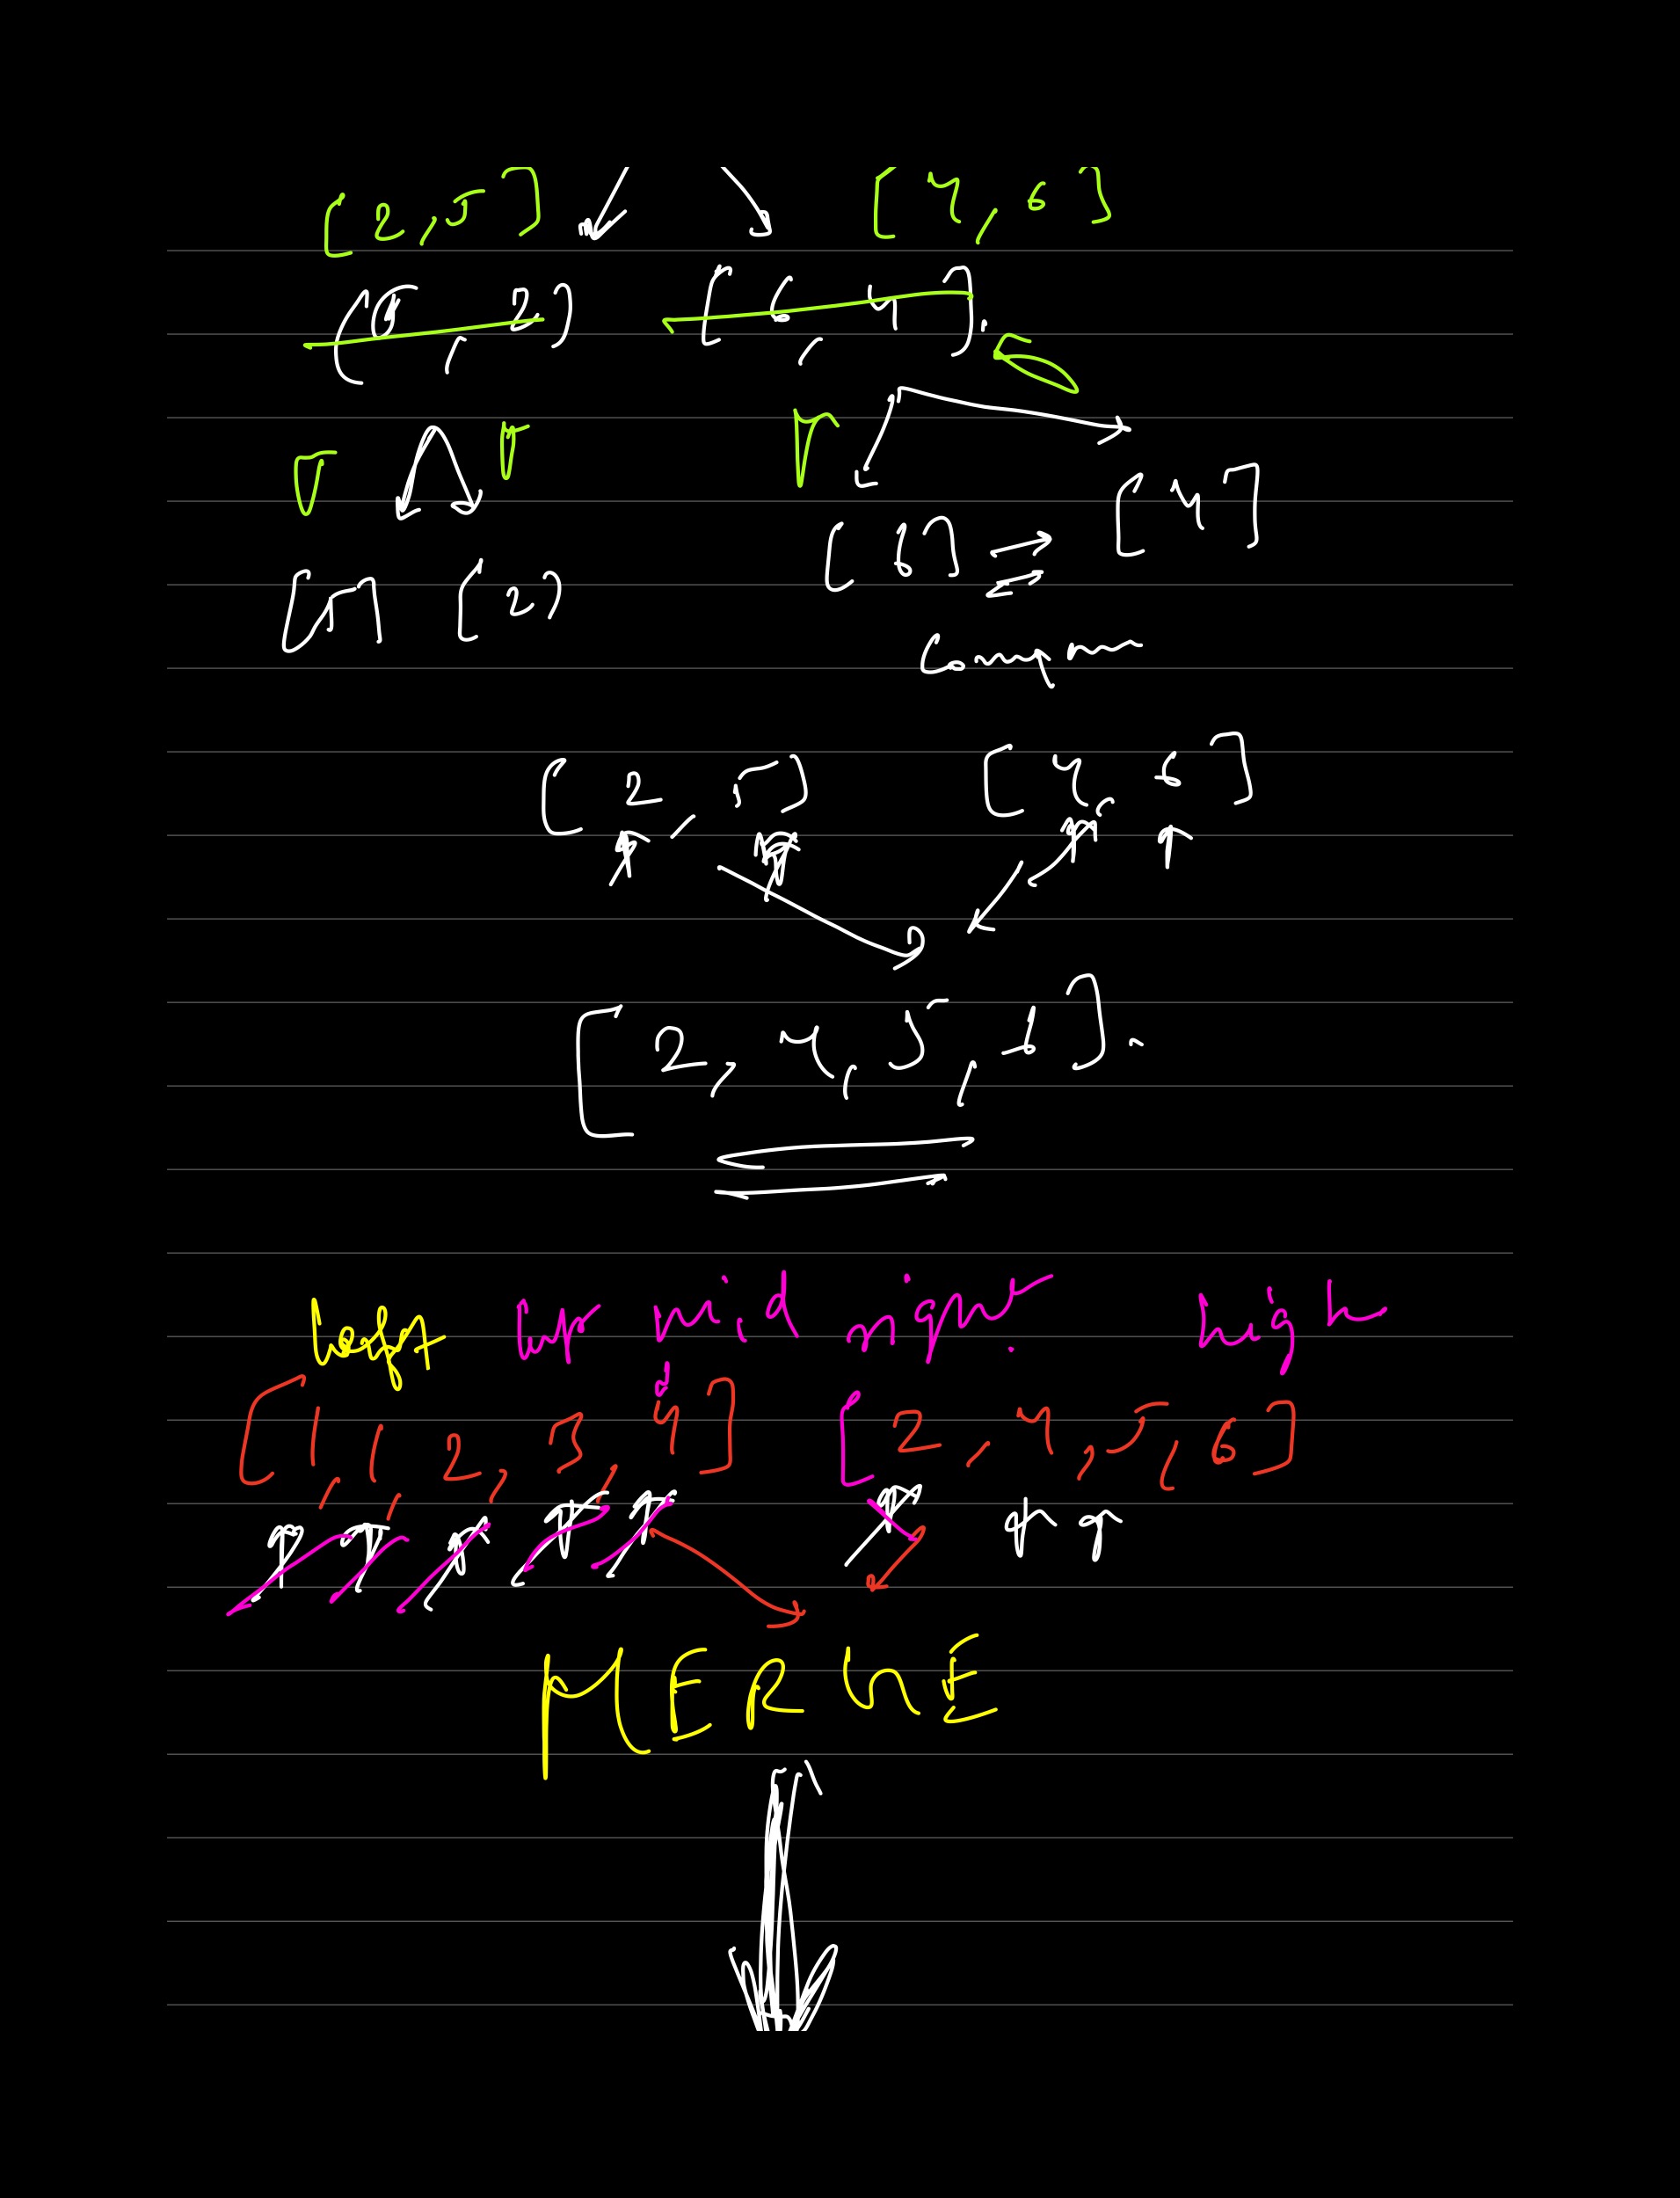 [2,5] [4,6]
[5, 2] [6, 4].
[5] [2] [6] [4]
[2, 5] [4, 6]
[2, 4, 5, 6].
left mid right. high
[1, 1, 2, 3, 4] [2, 4, 5, 6]
MERGE